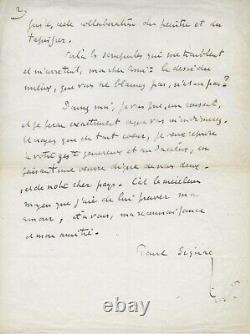 2)
que, cette collaboration du peintre et du
tapissier.
Voilà les scrupules qui me troublent
et m'arrêtent, mon cher ami : le désir du
mieux, que vous ne blâmez pas, n'est-ce pas ?
Dans un mot, je vous prie, un conseil,
et je ferai exactement ce que vous m'ordonnerez.
Croyez que de tout cœur, je veux répondre
à votre geste généreux et au Dacieu, en
faisant une œuvre digne de nous deux
et de notre cher pays. C'est le meilleur
moyen que j'aie de lui prouver mon
amour, et à vous, ma reconnaissance
et mon amitié.
Paul Signac